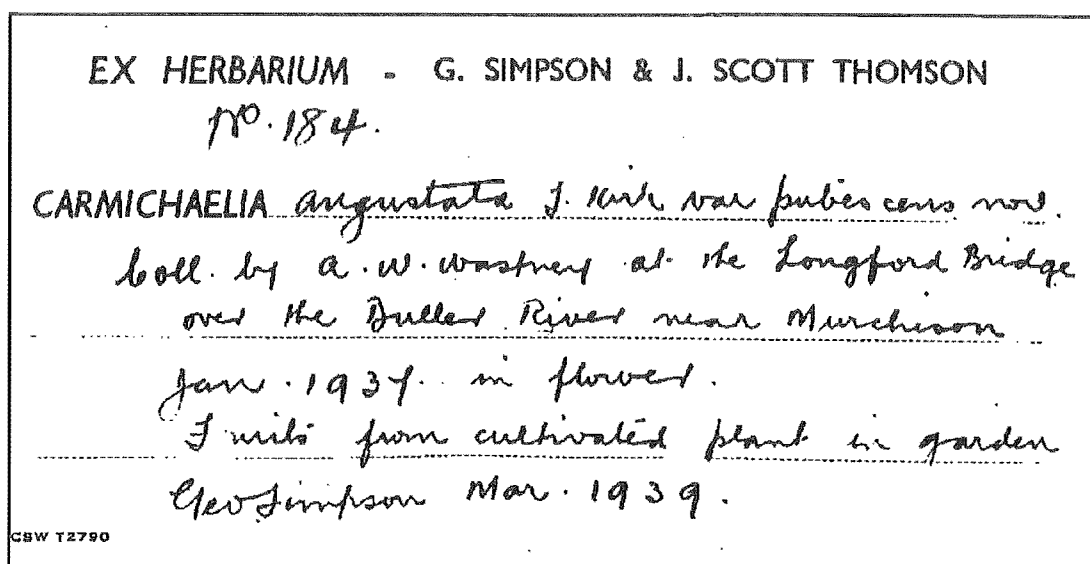 EX HERBARIUM - G. SIMPSON & J. SCOTT THOMSON
No. 184.
CARMICHAELIA angustata T. Kirk var pubescens nov.
Coll. by A. W. Wastney at the Longford Bridge
over the Buller River near Murchison
Jan. 1937. in flower.
Fruits from cultivated plant in garden
Geo Simpson Mar. 1939.
CSW T2790